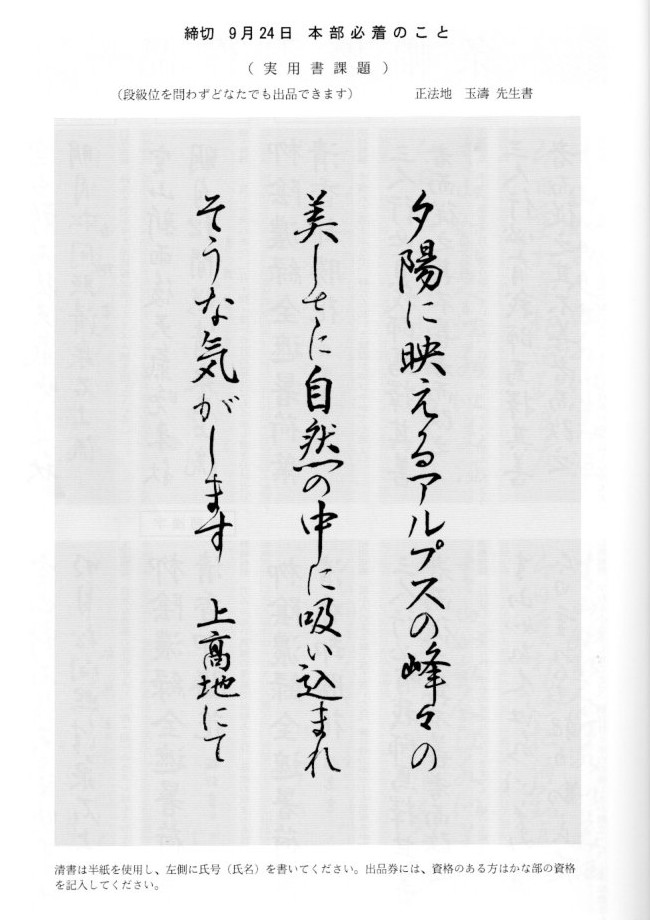 締切 9月24日 本部必着のこと
（実用書課題）
（段級位を問わずどなたでも出品できます） 正法地 玉濤 先生書
夕陽に映えるアルプスの峰々の
美しさに自然の中に吸い込まれ
そうな気がします 上高地にて
清書は半紙を使用し、左側に氏号（氏名）を書いてください。出品券には、資格のある方はかな部の資格
を記入してください。